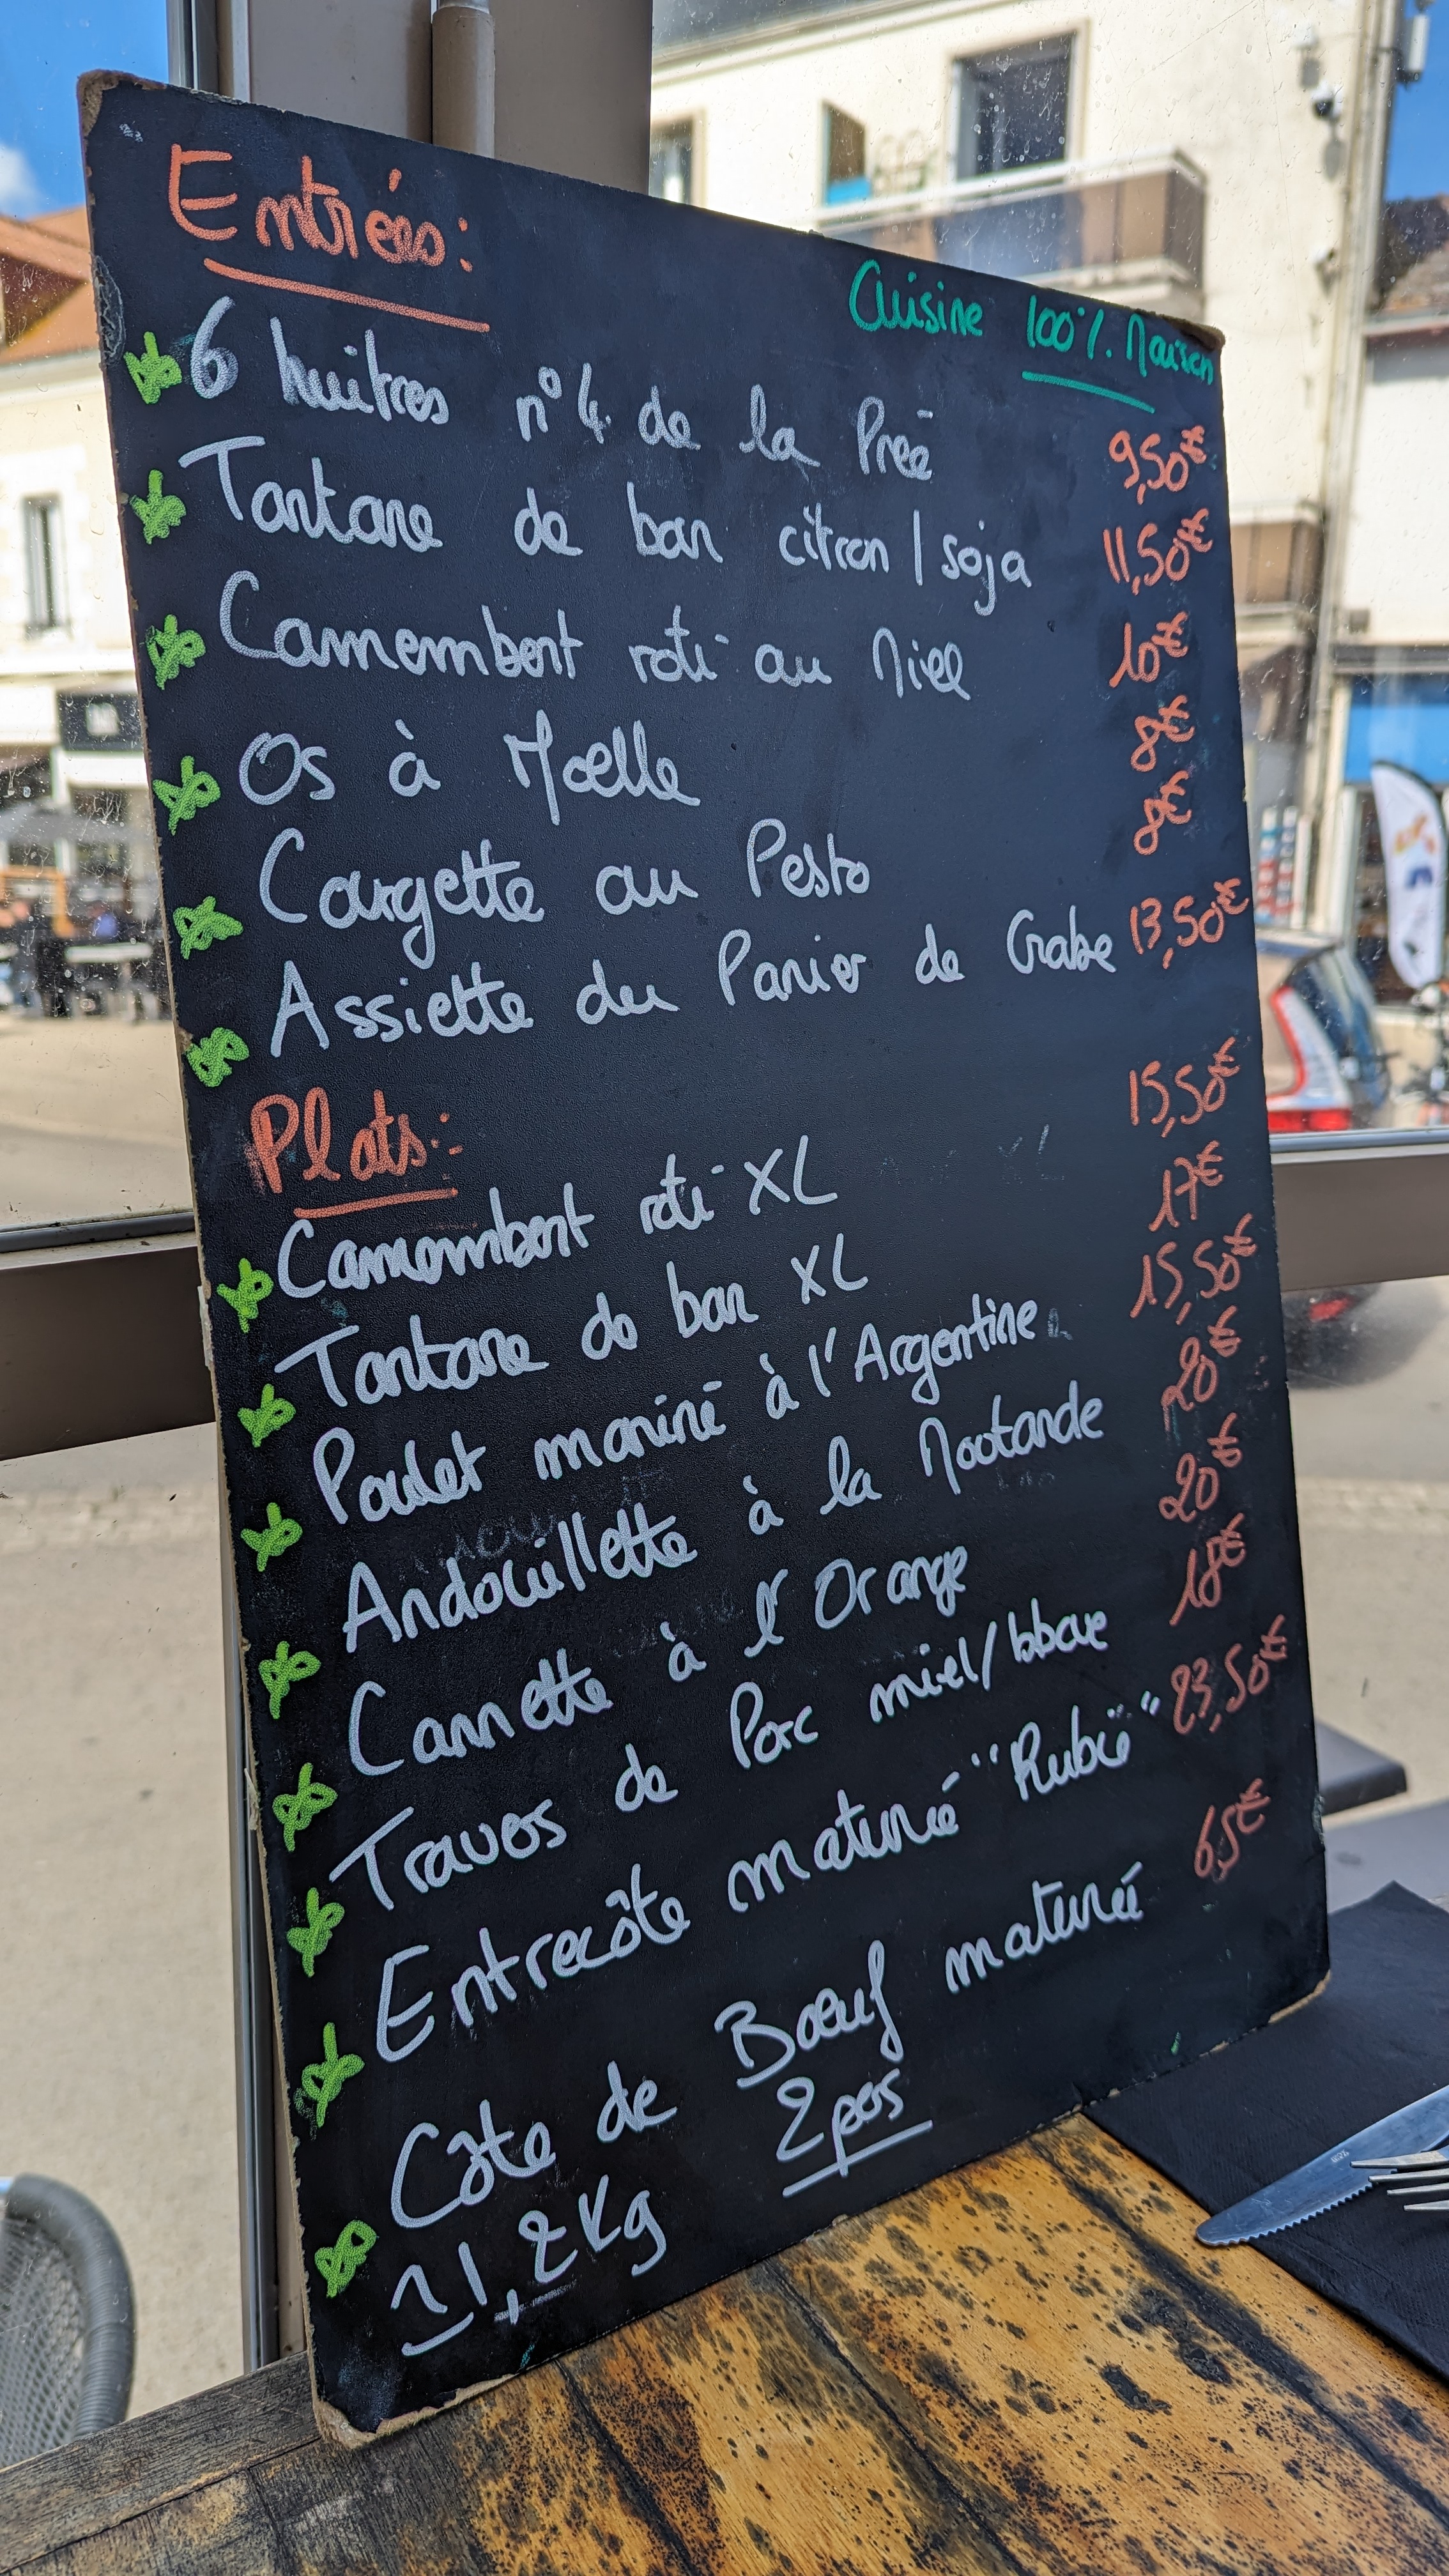 Entrées:
Cuisine 100% Maison
6 huitres n°4 de la Preé 9,50€
Tartare de bar citron / soja 11,50€
Camembert roti au Miel 10€
Os à Moelle 8€
Courgette au Pesto 8€
Assiette du Panier de Crabe 13,50€
Plats:
Camembert roti XL 15,50€
Tartare de bar XL 17€
Poulet mariné à l'Argentine 15,50€
Andouillette à la Moutarde 20€
Cannette à l'Orange 20€
Travers de Porc miel/bbcue 18€
Entrecôte maturée "Rubië" 23,50€
Côte de Boeuf maturée 65€
1,2Kg 2 pers